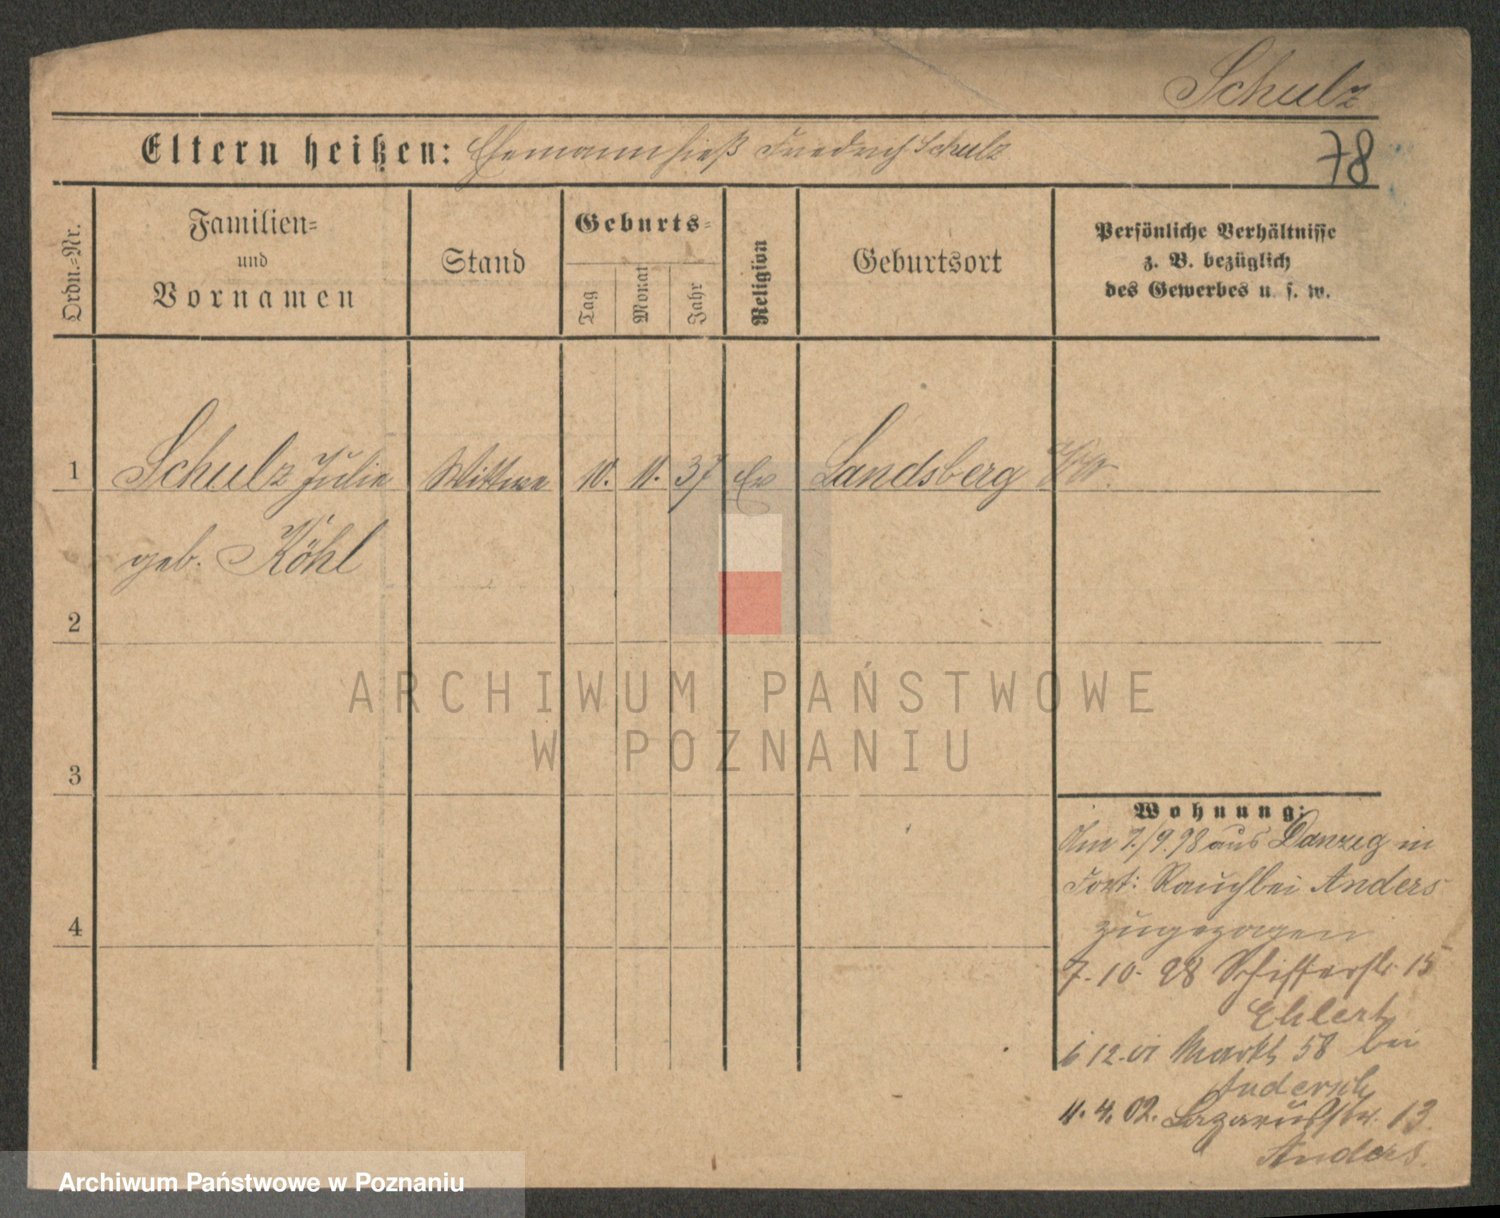 Schulz
Eltern heißen: Ehemann hieß Friedrich Schulz
78
Ordn.-Nr.
Familien-
und
Vornamen
Stand
Geburts-
Tag
Monat
Jahr
Religion
Geburtsort
Persönliche Verhältnisse
z. B. bezüglich
des Gewerbes u. s. w.
1
Schulz Julie
Wittwe
10.
11.
37
Ev
Landsberg
geb. Köhl
2
3
4
ARCHIWUM PAŃSTWOWE
W POZNANIU
Wohnung:
Am 7./9.98 aus Danzig in
Fort: Rauch bei Anders
zugezogen
7.10.98 Schifferstr. 15
Ehlert
6 12.01 Markt 58 bei
4.4.02. Lazarusstr. 13.
Anders.
Archiwum Państwowe w Poznaniu